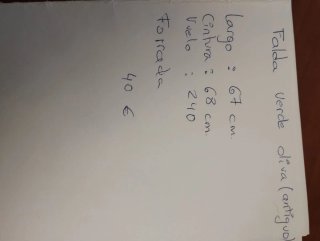 Falda verde diva (antiguo)
Largo : 67 cm.
Cintura : 68 cm
Vuelo : 240
Forrada
40 €